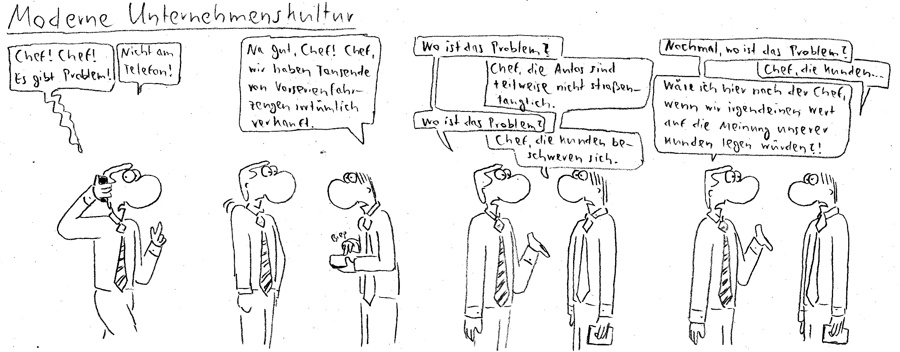 Moderne Unternehmenskultur
Chef! Chef!
Es gibt Problem!
Nicht am
Telefon!
Na gut, Chef! Chef,
wir haben Tausende
von Vorserienfahr-
zeugen irrtümlich
verkauft.
Biep
Wo ist das Problem?
Chef, die Autos sind
teilweise nicht straßen-
tauglich.
Wo ist das Problem?
Chef, die Kunden be-
schweren sich.
Nochmal, wo ist das Problem?
Chef, die Kunden...
Wäre ich hier noch der Chef,
wenn wir irgendeinen Wert
auf die Meinung unserer
Kunden legen würden?!